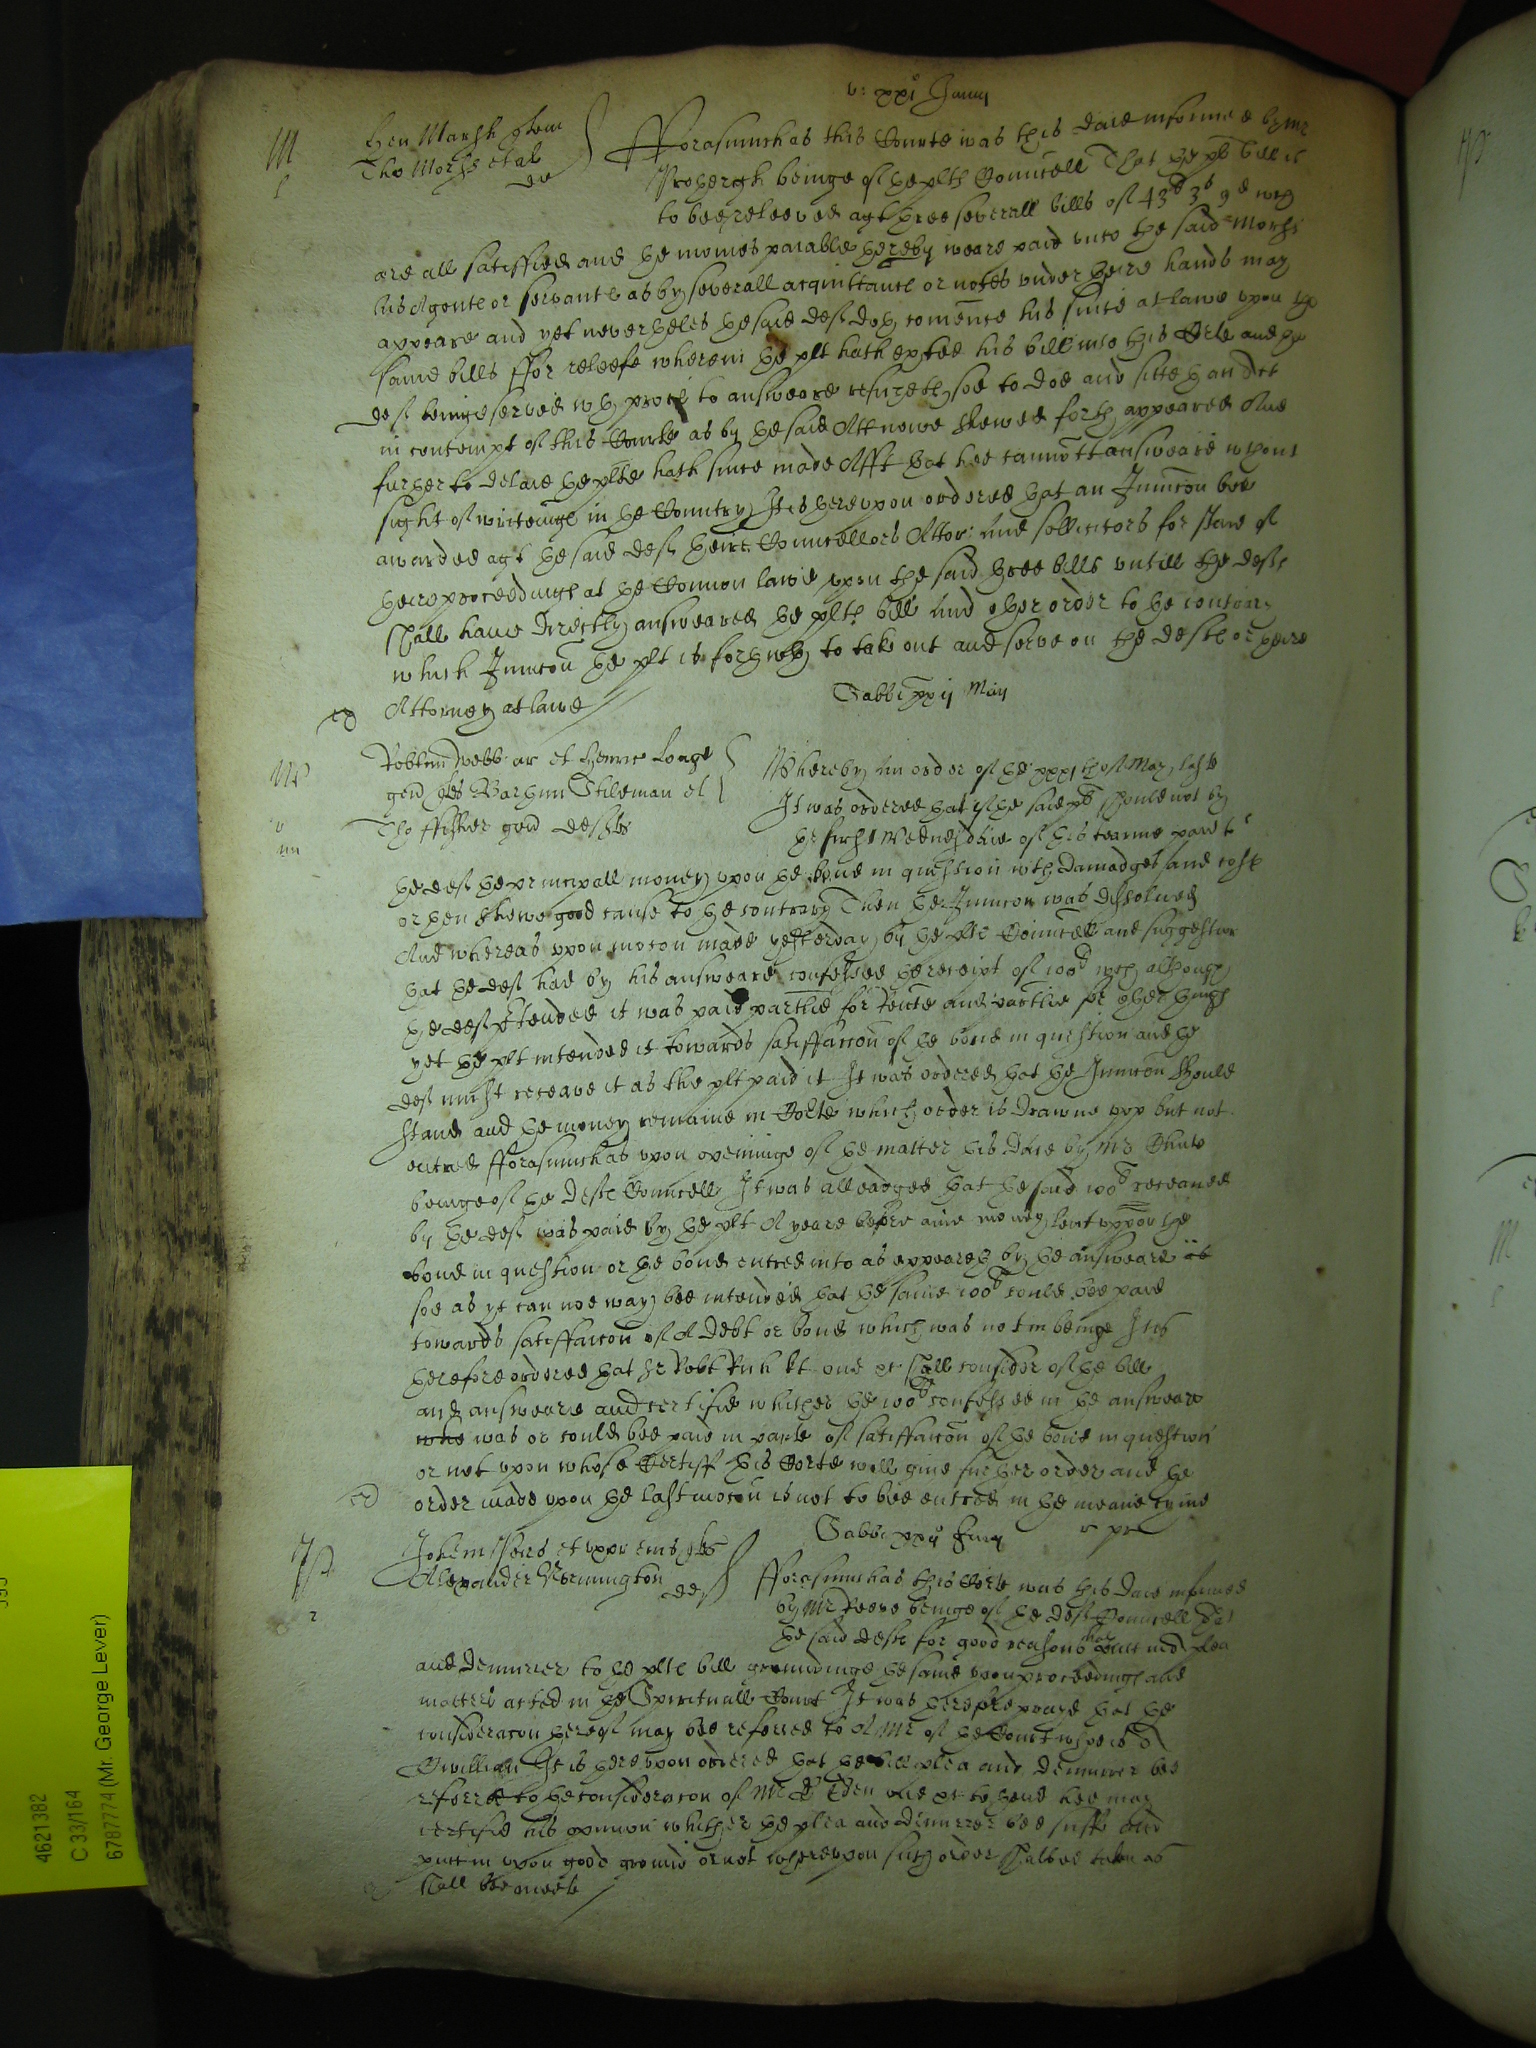 Hen Marsh quer
Tho Morse et al
def
fforasmuch as this Courte was this daie informed by Mr
beinge of the plts Councell That the plts bill is
to bee releeved agt three severall bills of 43li 3s 9d wch
are all satisffied and the monies paiable thereby weare paid unto the said Morse
his Agente or servante as by severall acquittance or notes under theire hands may
appeare and yet neverthelesse the said deft doth comence his suite at lawe upon the
same bills ffor releefe wherein the plt hath exhibited his bill into this Corte and the
deft beinge served wth proces to answeare refuseth soe to doe and sitteth
in contempt of this Courte as by the said Att nowe shewed forth appeared And
further to delaie the plte hath since made Afft that hee cannott answeare wthout
sight of writeinge in the Country It is thereupon ordered that an Iniunccon bee
awarded agt the said deft theire Councellors Attor: and sollicitors for staie of
theire proceedinge at the Common lawe upon the said three bills untill the defte
shall have directly answeared the plts bill and other order to the contrary
which Iniunccon the plt is forthwith to take out and serve on the defte or theire
Attorney at lawe
Sabbi xxij
Webb ar et Henric Longe
gen qtes Stileman et
Tho ffisher gen defts
Whereby an order of the xxxjth of May laste
It was ordered that if the said plt should not by
the first Wednesdaie of this tearme paie to
the deft the principall money upon the bond in question with damadges and coste
or then shewe good cause to the contrary Then the Iniunccon was dissolved
And whereas upon mocon made yesterday by the plte Councell and suggestion
that the deft had by his answeare confessed the receipt of 100li wch although
the deft ptended it was paid partlie for Rente and partlie for other things
yet the plt intended it towards satisffaccon of the bond in question and the
deft must receave it as the plt paid it It was ordered that the Iniunccon should
stand and the money remaine in Corte which order is drawne upp but not
entred fforasmuch as upon openinge of the matter this daie by Mr
beinge of the defte Councell It was alleadged that the said 100li receaved
by the deft was paid by the plt A yeare before anie money lent uppon the
bond in question or the bond entred into as appeareth by the answeare
soe as yt can noe way bee intended that the same 100li could bee paid
towards satisffaccon of A debt or bond which was not in beinge It is
therefore ordered that Sr Robt Rich kt one et shall consider of the bill
and answeare and certifie whither the 100li confessed in the answeare
was or could bee paid in parte of satisffaccon of the bond in question
or not upon whose Certiff this Corte will give further order and the
order made upon the last mocon is not to bee entred in the meane tyme
Sabbi
et uxor eius qtes
Alexander
def
fforasmuch as this Corte was this daie informed
by Mr beinge of the deft Councell that
the said defte for good reasons hath putt in A plea
and demurrer to the plte bill groundinge the same upon proceedinge and
matters acted in the Spirituall Court It was therefore prayed that the
consideracon thereof may bee referred to A Mr of the Court whoe is A
Civillian It is thereupon ordered that the bill plea and demurrer bee
referred to the consideracon of Mr D Eden one et to thend hee may
certifie his opinion whither the plea and demurrer bee suff and
putt in upon good ground or not whereupon such order shalbee taken as
shall bee meete
4621382
C 33/164
6787774 (Mr. George Lever)